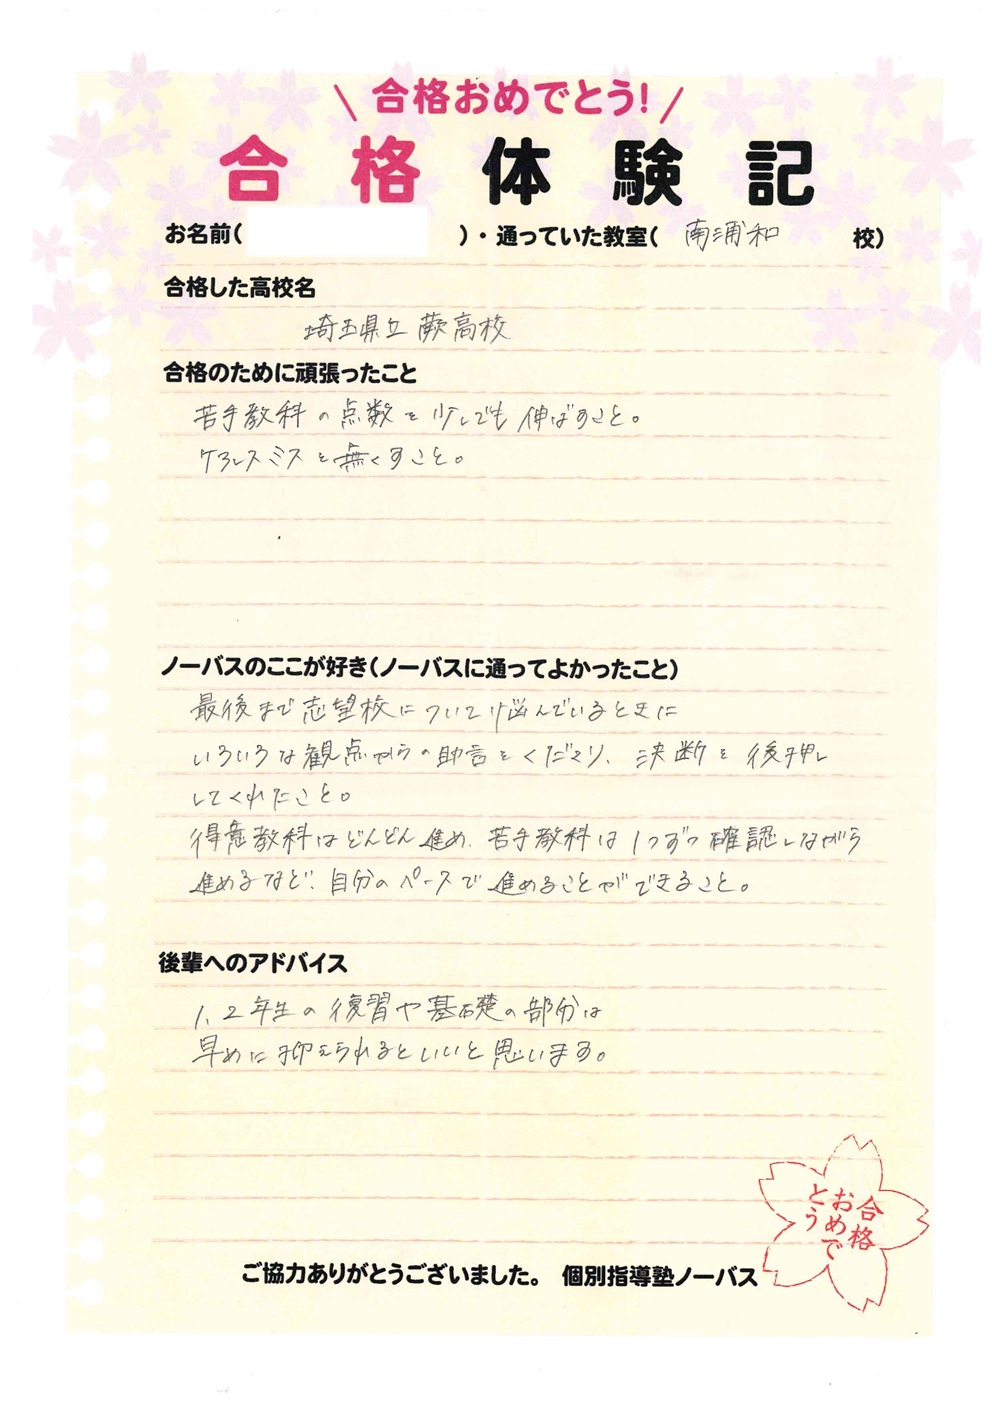 合格おめでとう!
合格体験記
お名前( )・通っていた教室( 南浦和 校)
合格した高校名
埼玉県立 蕨高校
合格のために頑張ったこと
苦手教科の点数を少しでも伸ばすこと。
ケアレスミスを無くすこと。
ノーバスのここが好き(ノーバスに通ってよかったこと)
最後まで志望校について悩んでいるときに
いろいろな観点からの助言をくださり、決断を後押し
してくれたこと。
得意教科はどんどん進め、苦手教科は1つずつ確認しながら
進めるなど、自分のペースで進めることができること。
後輩へのアドバイス
1、2年生の復習や基礎の部分は
早めに抑えられるといいと思います。
合格
おめで
とう
ご協力ありがとうございました。 個別指導塾ノーバス